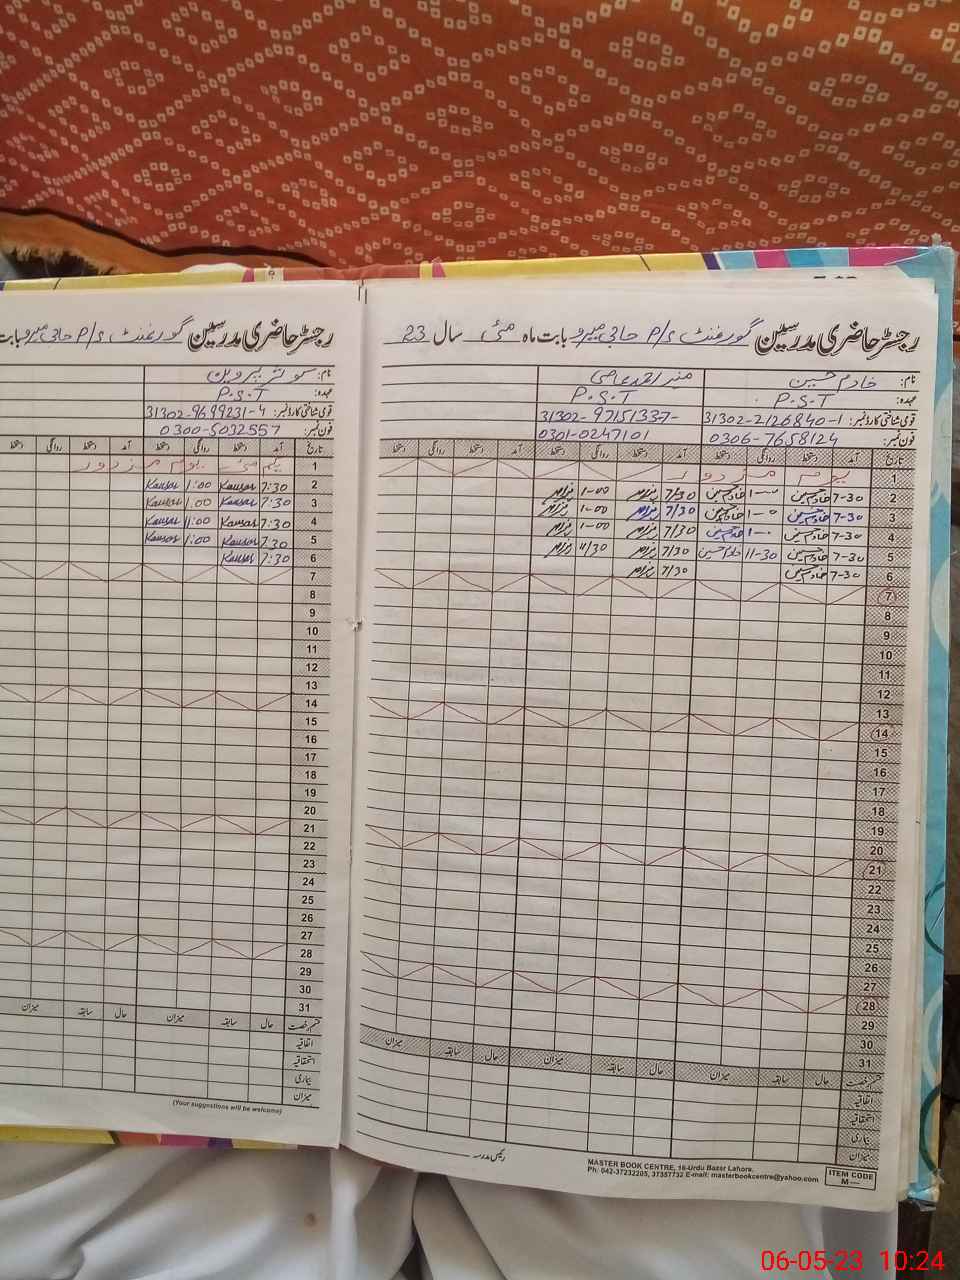 رجسٹر حاضری مدرسین گورنمنٹ P/S حاجی میرو بابت ماہ مئی سال 23
نام: خادم حسین
عہدہ: P.S.T P.S.T
قومی شناختی کارڈ نمبر: 31302-2126840-1 31302-97151337-
فون نمبر: 0306-7658124 0301-0247101
تاریخ آمد دستخط روانگی دستخط آمد دستخط روانگی دستخط آمد دستخط روانگی دستخط
1 یوم مزدور
2 7-30 خادم حسین 1-00 خادم حسین 7/30 1-00
3 7-30 خادم حسین 1-0 خادم حسین 7/30 1-00
4 7-30 خادم حسین 1-0 خادم حسین 7/30 1-00
5 7-30 خادم حسین 11-30 خادم حسین 7/30 11/30
6 7-30 خادم حسین 7/30
7
8
9
10
11
12
13
14
15
16
17
18
19
20
21
22
23
24
25
26
27
28
29
30
31
قسم رخصت حال سابقہ میزان حال سابقہ میزان حال سابقہ میزان
اتفاقیہ
استحقاقیہ
بیماری
میزان
رئیس مدرسہ
MASTER BOOK CENTRE, 16-Urdu Bazar Lahore.
Ph: 042-37232205, 37357732 E-mail: masterbookcentre@yahoo.com
ITEM CODE
M—
رجسٹر حاضری مدرسین گورنمنٹ P/S حاجی میرو بابت
نام: پروین
عہدہ: P.S.T
قومی شناختی کارڈ نمبر: 31302-9699231-4
فون نمبر: 0300-5032557
تاریخ آمد دستخط روانگی دستخط آمد دستخط روانگی دستخط
1 یکم مئی یوم مزدور
2 7:30 Kausar 1:00 Kausar
3 7:30 Kausar 1:00 Kausar
4 7:30 Kausar 1:00 Kausar
5 7:30 Kausar 1:00 Kausar
6 7:30 Kausar
7
8
9
10
11
12
13
14
15
16
17
18
19
20
21
22
23
24
25
26
27
28
29
30
31
قسم رخصت حال سابقہ میزان حال سابقہ میزان
اتفاقیہ
استحقاقیہ
بیماری
میزان
(Your suggestions will be welcome)
06-05-23 10:24